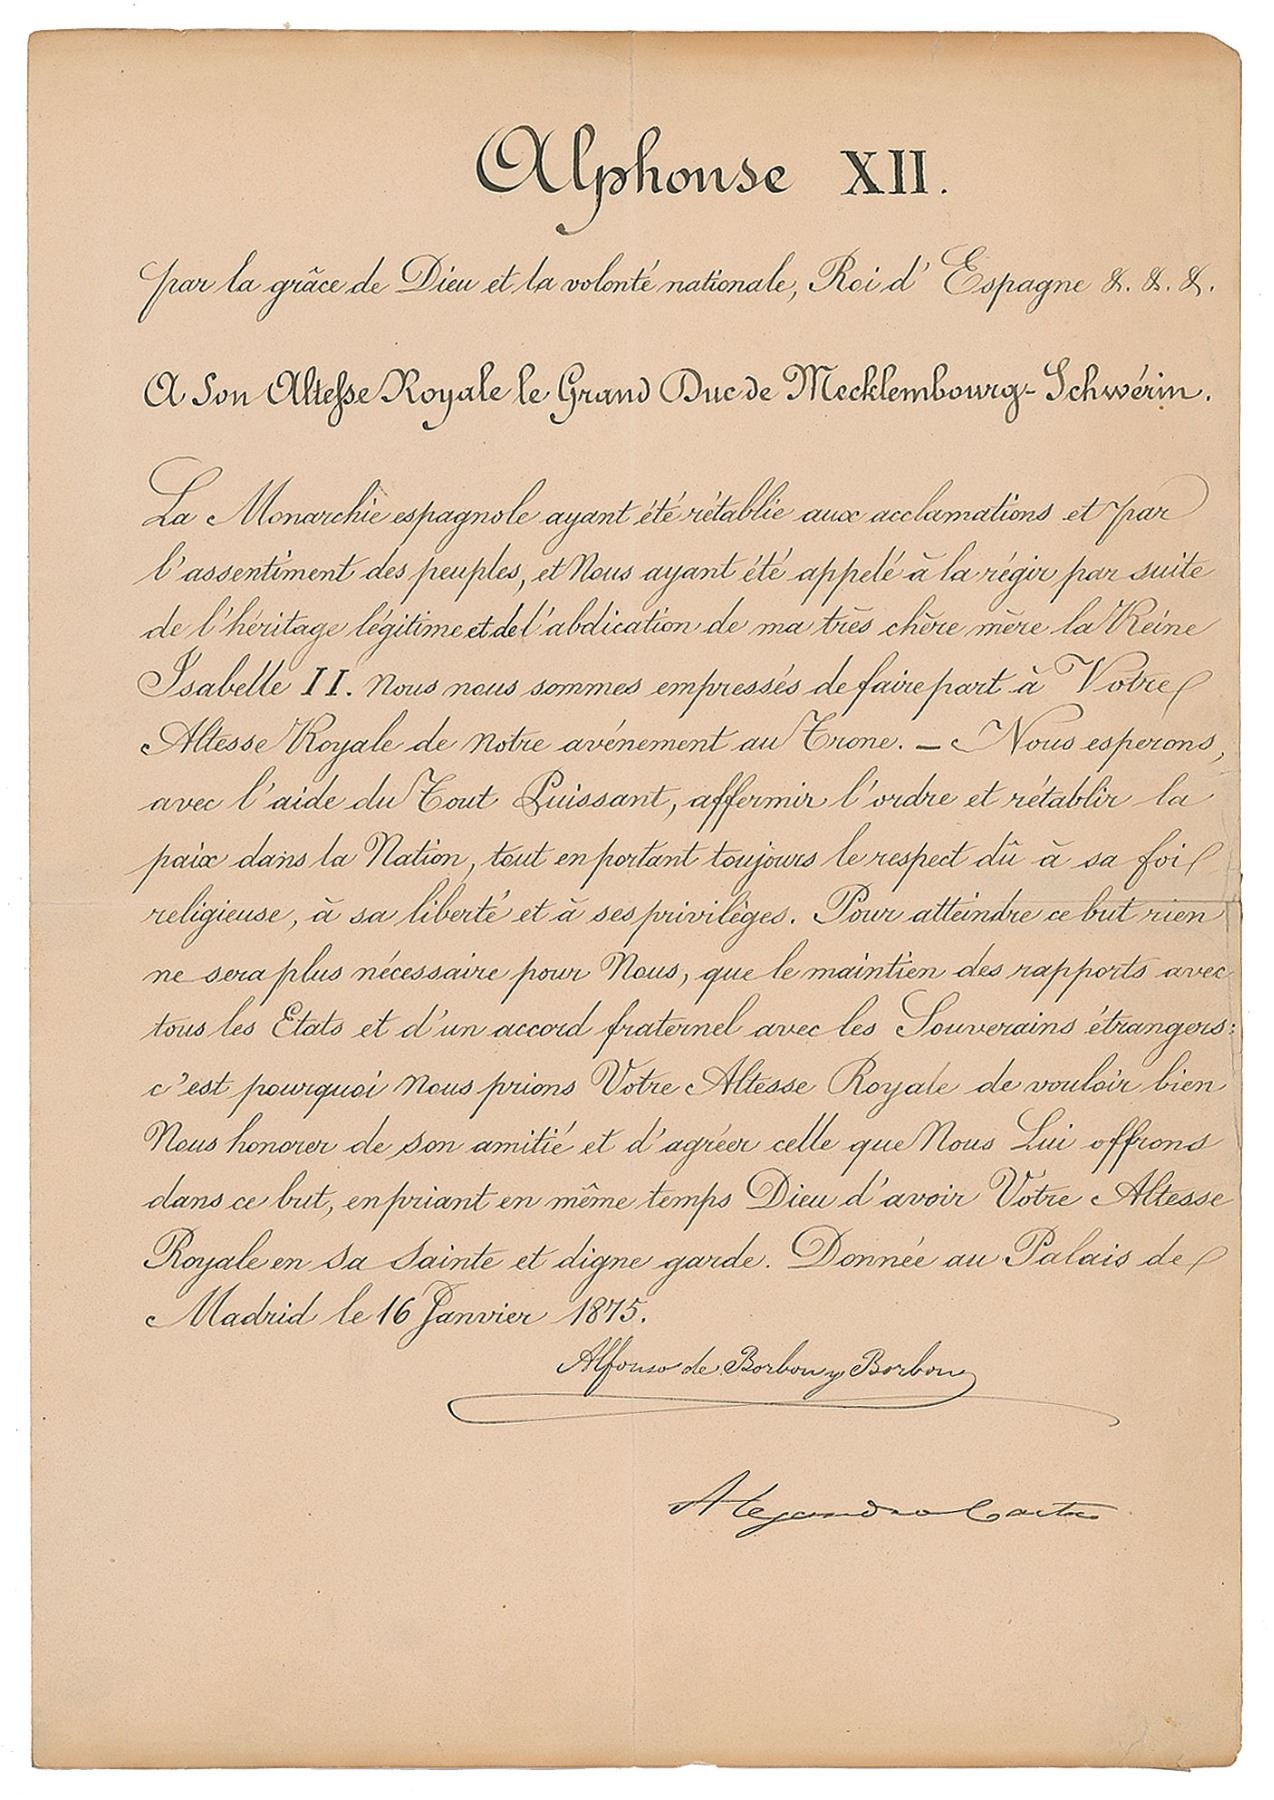 Alphonse XII.
par la grâce de Dieu et la volonté nationale, Roi d'Espagne &. &. &.
A Son Altesse Royale le Grand Duc de Mecklembourg-Schwérin.
La Monarchie espagnole ayant été rétablie aux acclamations et par
l'assentiment des peuples, et Nous ayant été appelé à la régir par suite
de l'héritage légitime et de l'abdication de ma très chère mère la Reine
Isabelle II. Nous nous sommes empressés de faire part à Votre
Altesse Royale de notre avénement au Trone. — Nous esperons,
avec l'aide du Tout Puissant, affermir l'ordre et rétablir la
paix dans la Nation, tout en portant toujours le respect dû à sa foi
religieuse, à sa liberté et à ses privilèges. Pour atteindre ce but rien
ne sera plus nécessaire pour Nous, que le maintien des rapports avec
tous les Etats et d'un accord fraternel avec les Souverains étrangers:
c'est pourquoi Nous prions Votre Altesse Royale de vouloir bien
Nous honorer de son amitié et d'agréer celle que Nous Lui offrons
dans ce but, en priant en même temps Dieu d'avoir Votre Altesse
Royale en Sa Sainte et digne garde. Donnée au Palais de
Madrid le 16 Janvier 1875.
Alfonso de Borbon y Borbon
Alejandro Castro